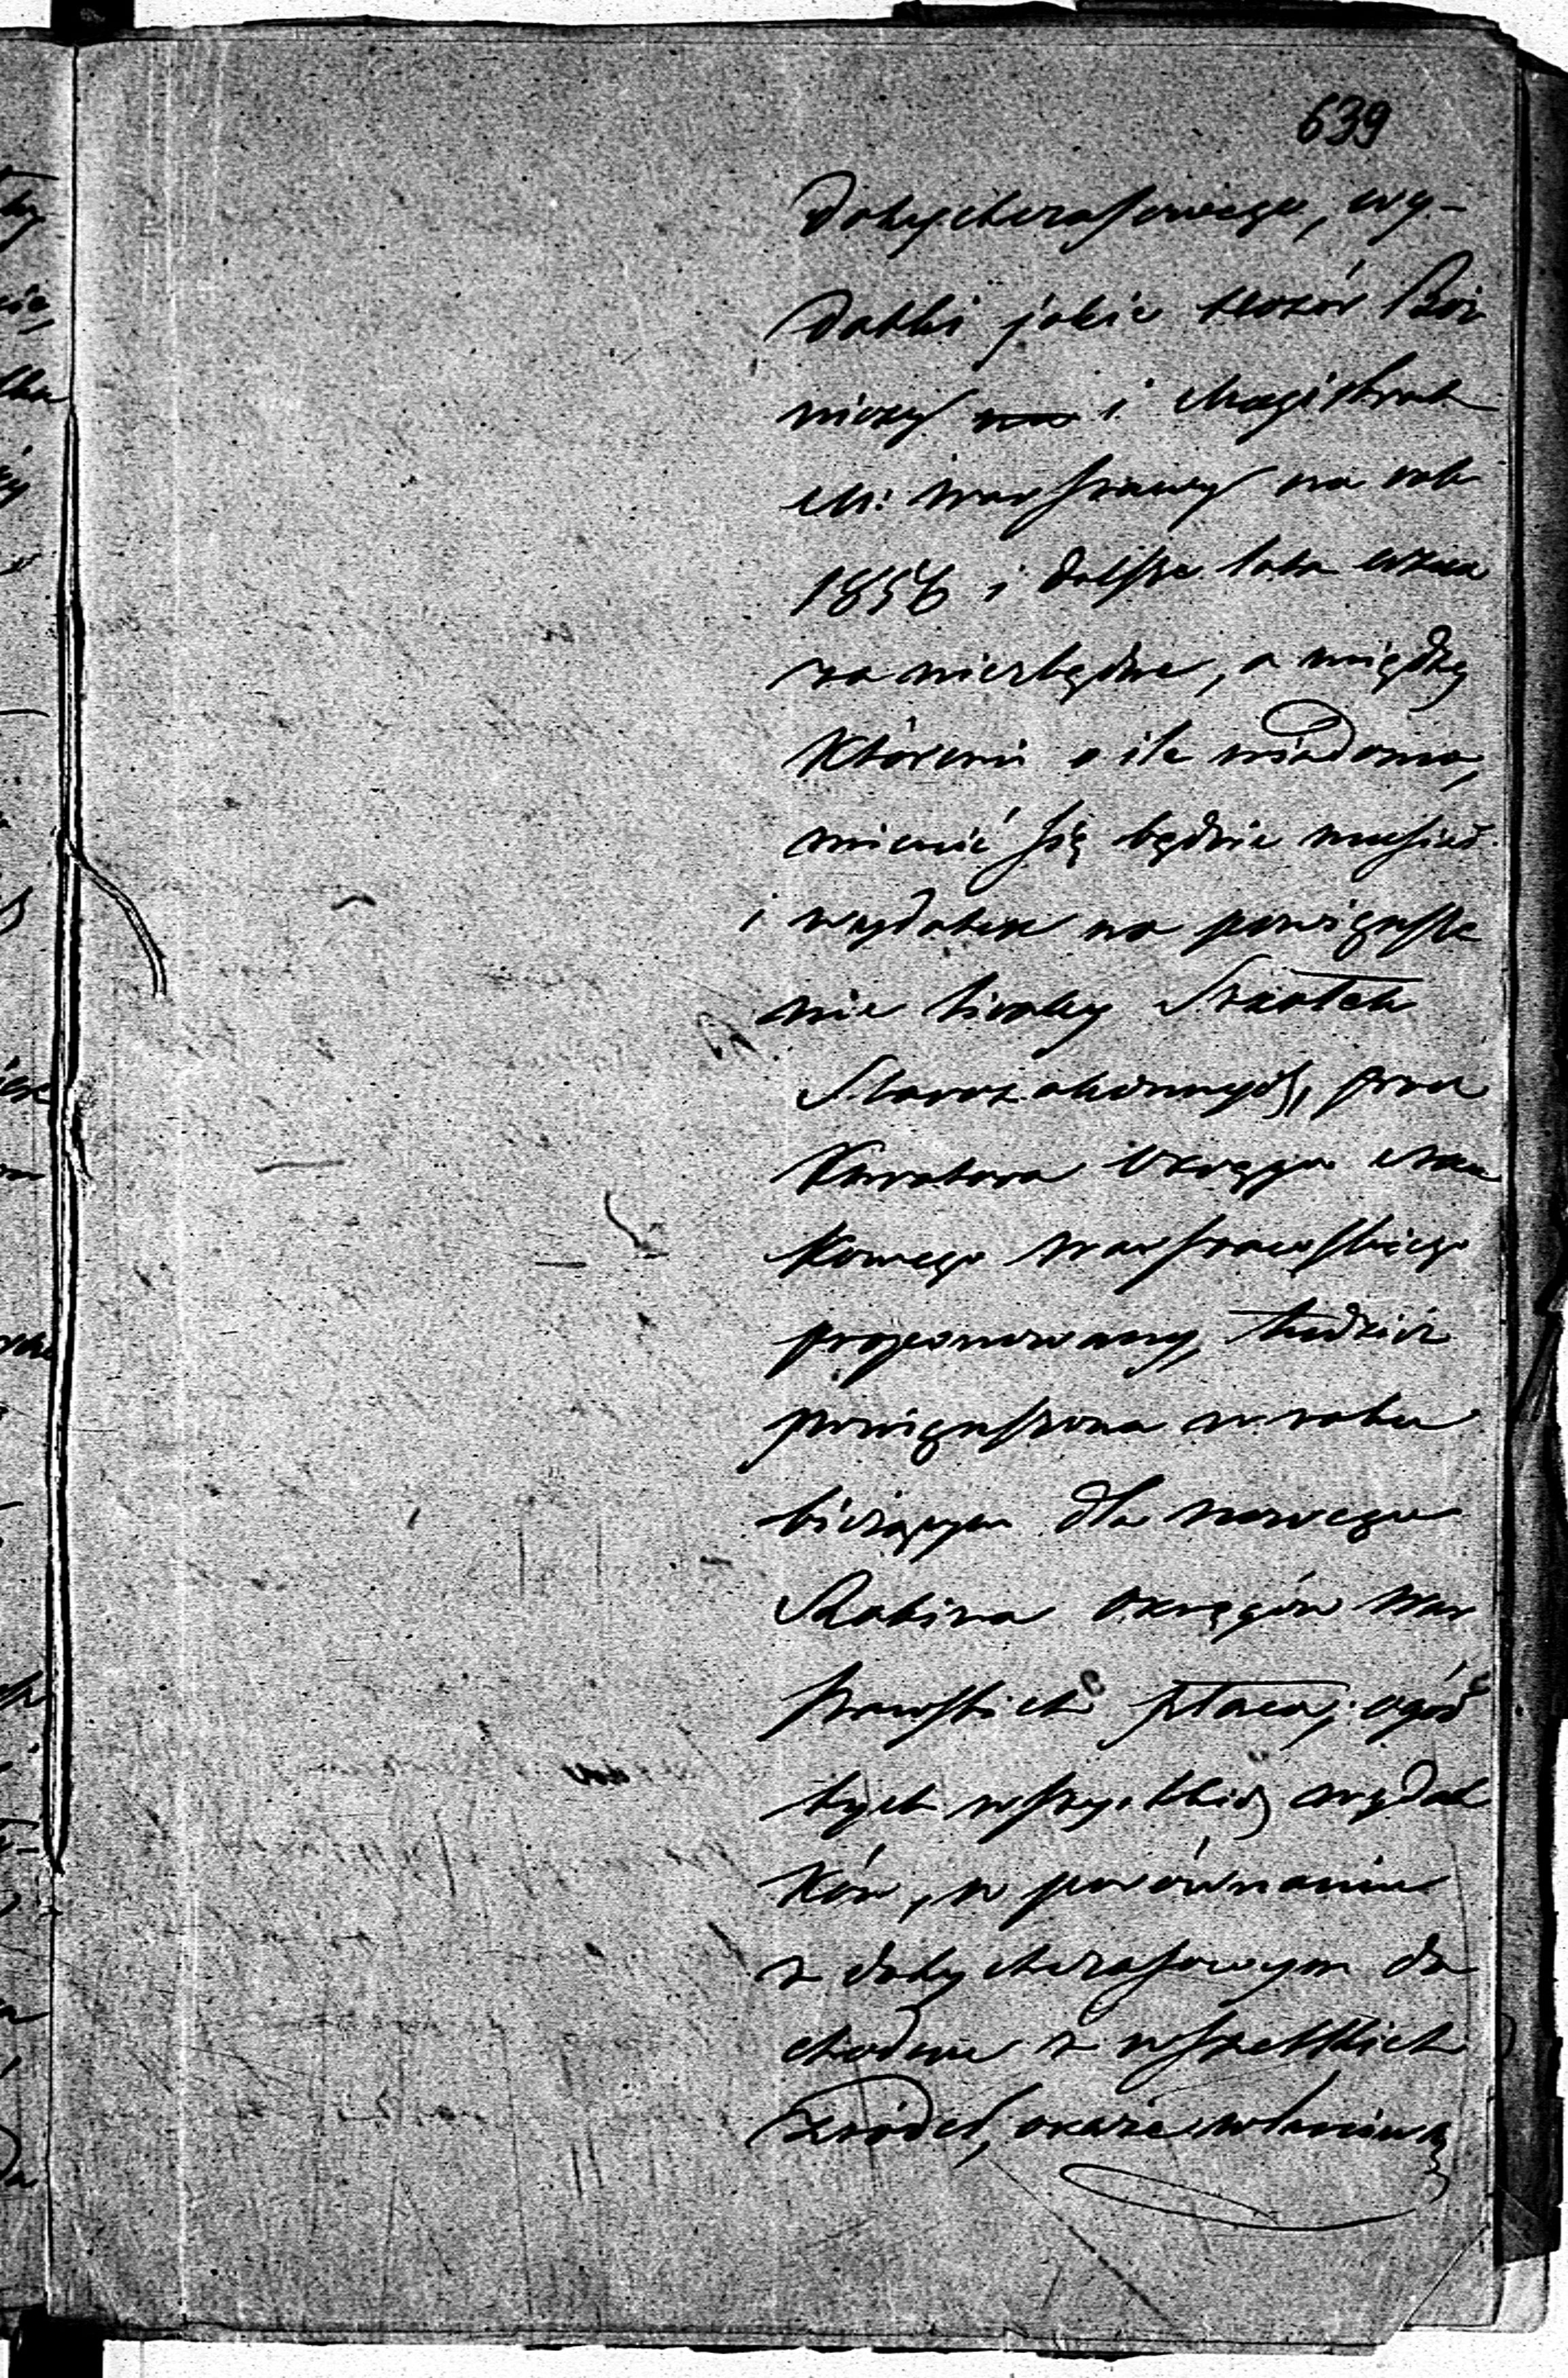 639
dotychczasowego, wy-
datki jakie dozór Boż
niczy na i Magistrat
M: Warszawy na rok
1856 i dalsze lata uzna
za niezbędne, a między
któremi o ile wiadomo,
mieścić się będzie musiał
i wydatek na powiększe
nie liczby Szkółek
Starozakonnych, przez
Kuratora Okręgu Nau
kowego Warszawskiego
proponowany, tudzież
powiększona w roku
bieżącym dla nowego
Rabina okręgów War
szawskich płaca; ogół
tych wszystkich wydat
ków, w porównaniu
z dotychczasowym do
chodem z wszelkich
źródeł, okaże właściwą